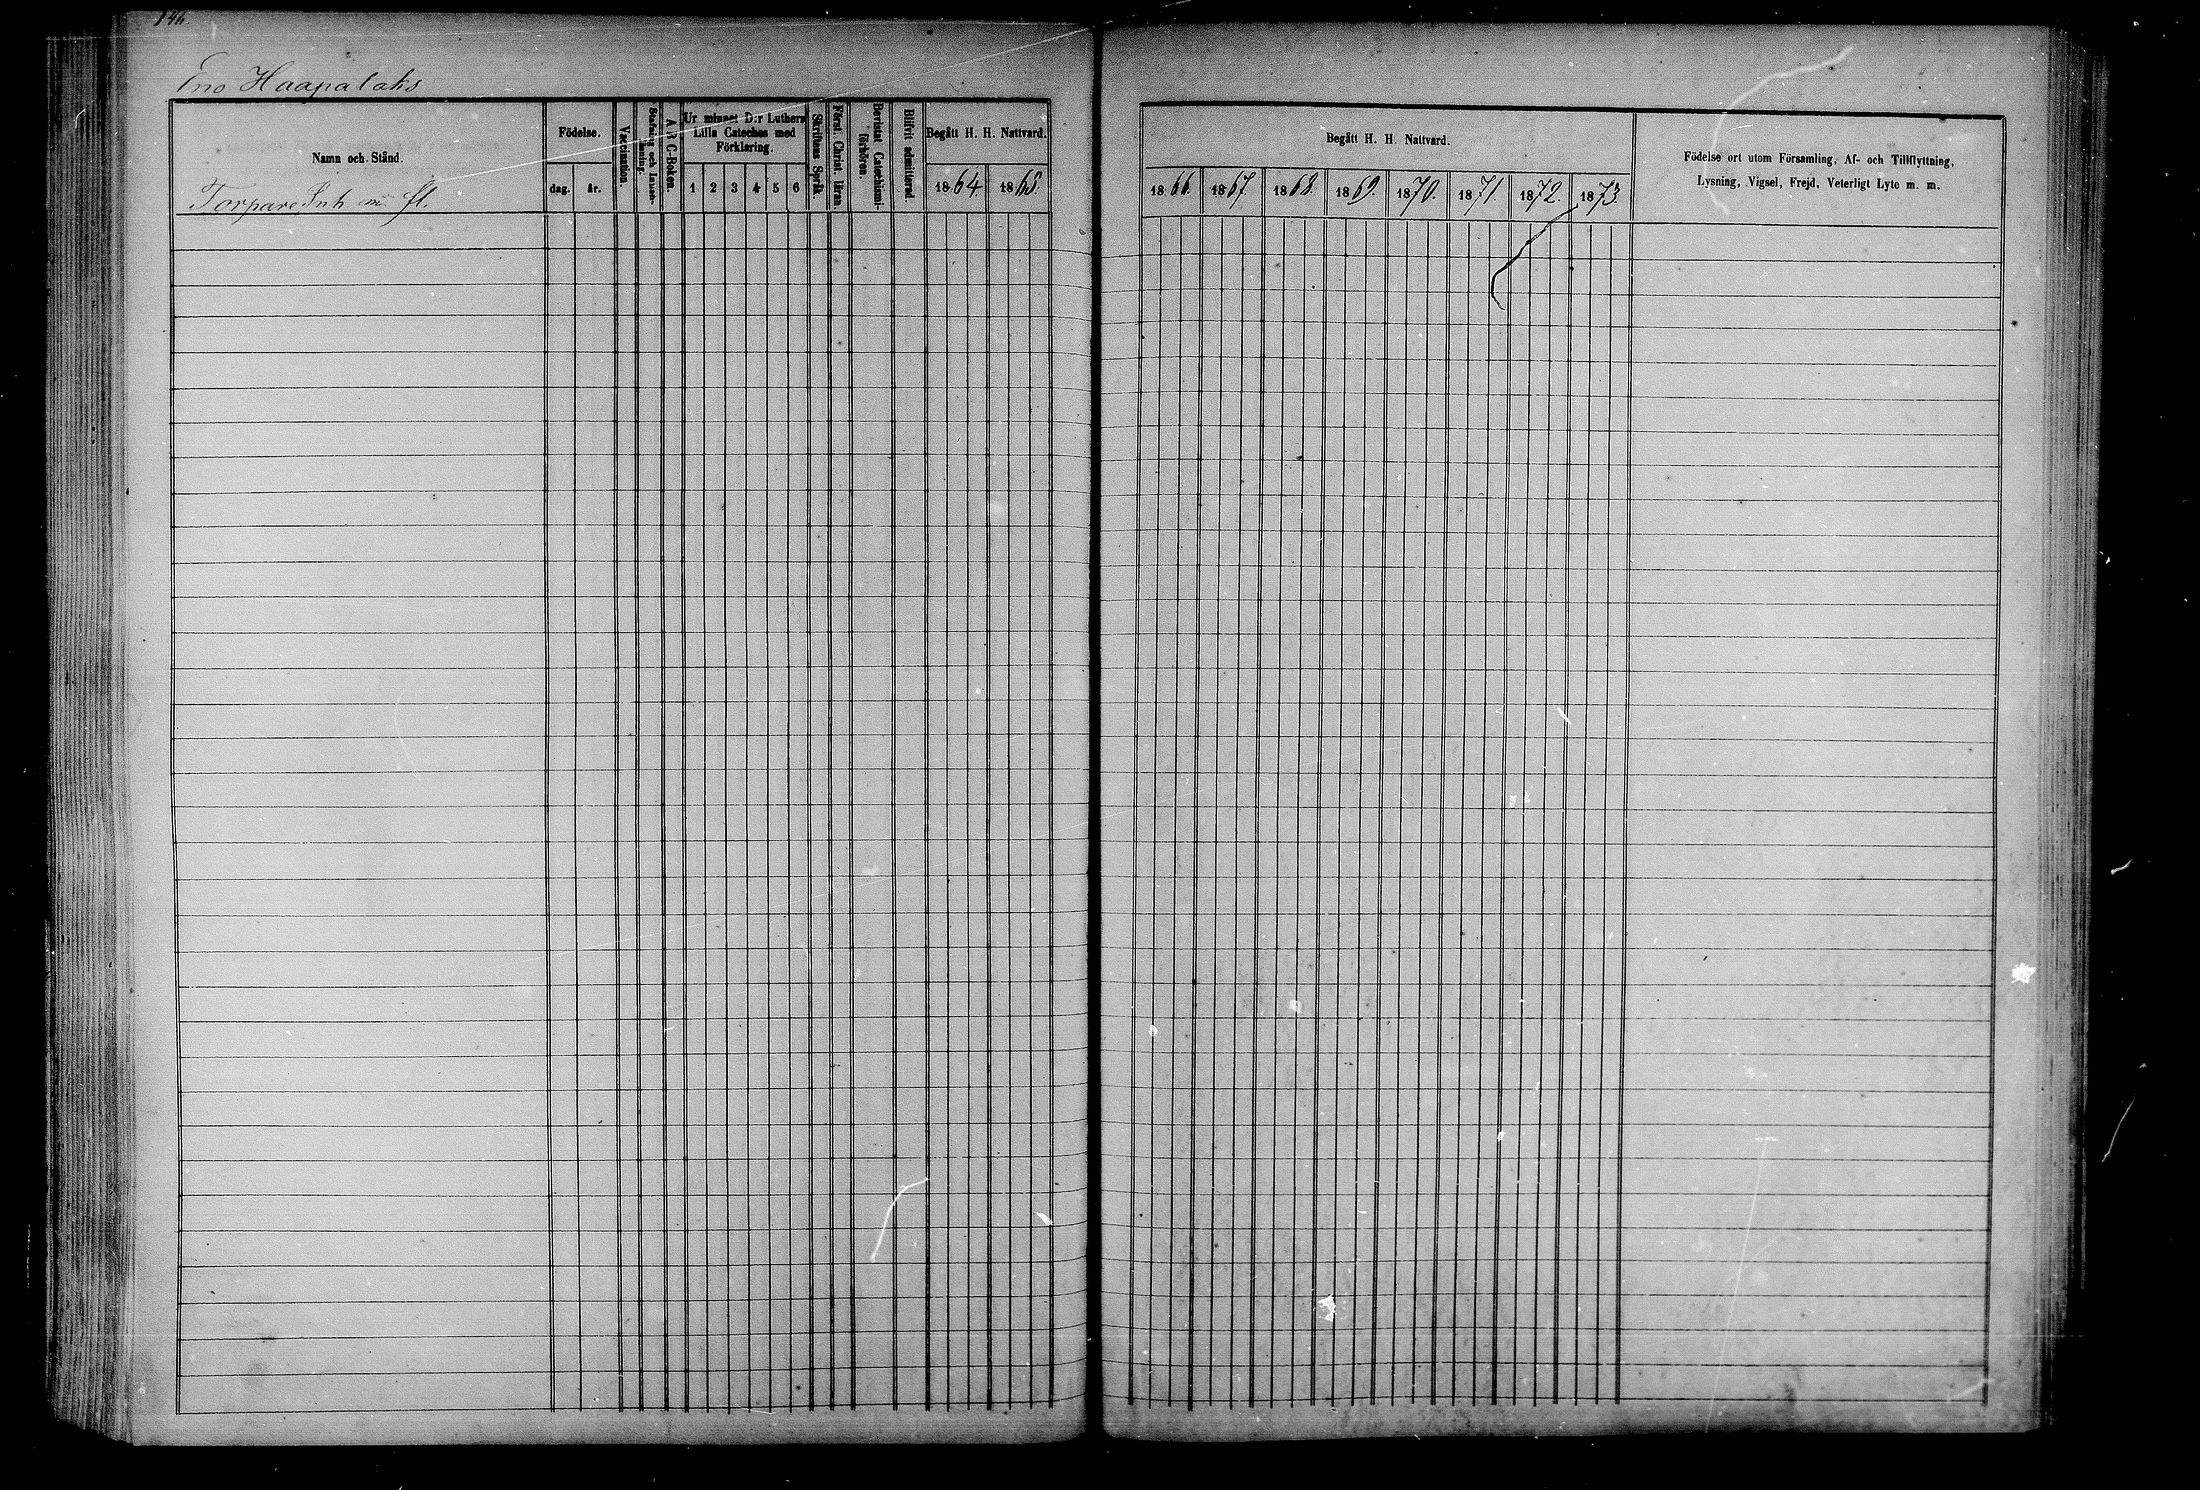 146
Eno Haapalaks
Namn och Stånd.
Torpare Inh m fl.
Födelse.
dag. år.
Vaccination.
Stafning och Innanläsning.
A B C-Boken.
Ur minnet D:r Luthers
Lilla Cateches med
Förklaring.
1 2 3 4 5 6
Skriftens Språk.
Först. Christ. läran.
Bevistat Catechismi-
förhören.
Blifvit admitterad.
Begått H. H. Nattvard.
1864 1865.
Begått H. H. Nattvard.
1866. 1867. 1868. 1869. 1870. 1871. 1872. 1873.
Födelse ort utom Församling, Af- och Tillflyttning,
Lysning, Vigsel, Frejd, Veterligt Lyte m. m.